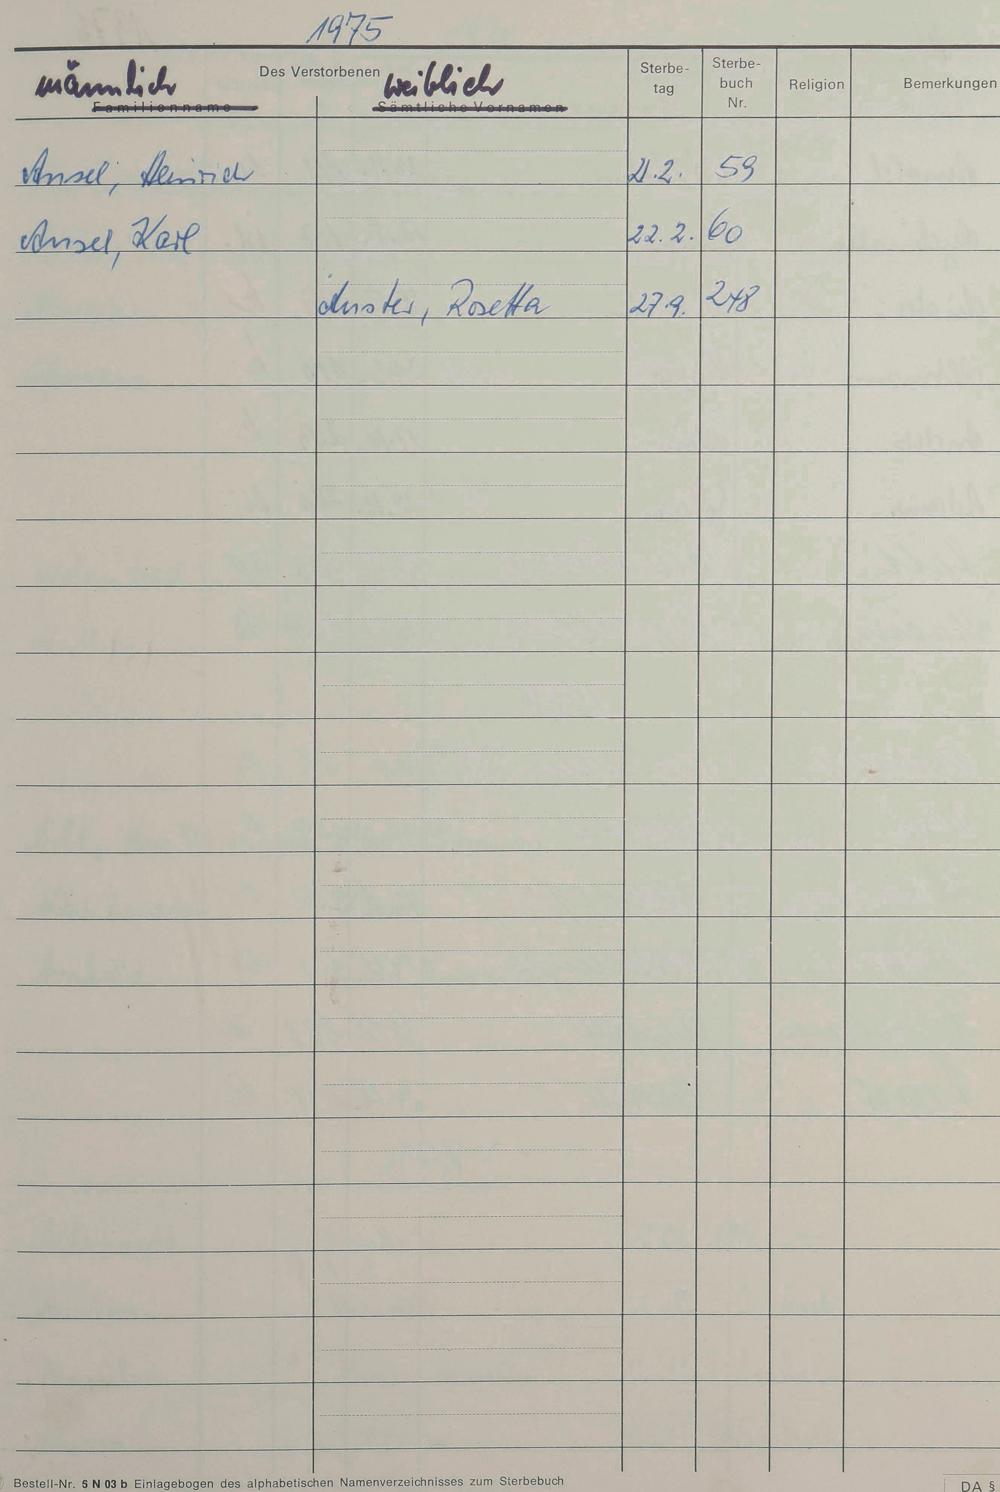 1975
männlich Des Verstorbenen weiblich
Familienname Sämtliche Vornamen
Sterbe-
tag
Sterbe-
buch
Nr.
Religion
Bemerkungen
Ansel, Heinrich 21.2. 59
Ansel, Karl 22.2. 60
Auster, Rosetta 27.9. 248
Bestell-Nr. 5 N 03 b Einlagebogen des alphabetischen Namenverzeichnisses zum Sterbebuch
DA §